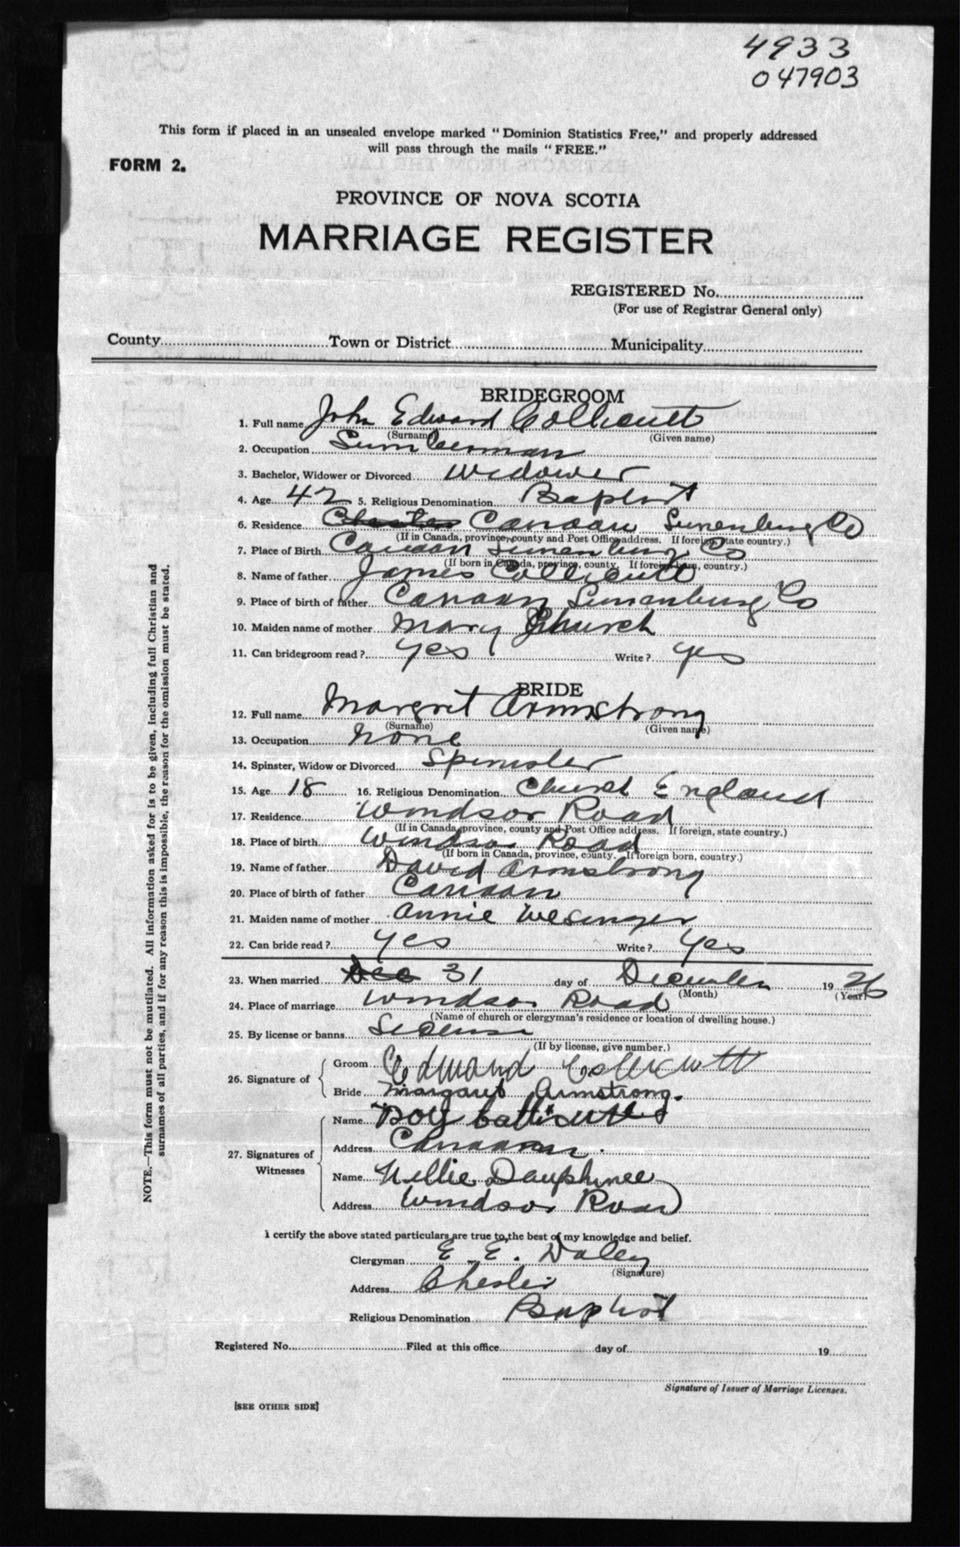 4933
047903
This form if placed in an unsealed envelope marked "Dominion Statistics Free," and properly addressed
will pass through the mails "FREE."
FORM 2.
PROVINCE OF NOVA SCOTIA
MARRIAGE REGISTER
REGISTERED No.
(For use of Registrar General only)
County Town or District Municipality
BRIDEGROOM
1. Full name John Edward Collicutt
(Surname) (Given name)
2. Occupation Lumberman
3. Bachelor, Widower or Divorced Widower
4. Age 42 5. Religious Denomination Baptist
6. Residence Chester Canaan Lunenburg Co
(If in Canada, province, county and Post Office address. If foreign, state country.)
7. Place of Birth Canaan Lunenburg Co
(If born in Canada, province, county. If foreign born, country.)
8. Name of father James Collicutt
9. Place of birth of father Canaan Lunenburg Co
10. Maiden name of mother Mary Church
11. Can bridegroom read? yes Write? yes
BRIDE
12. Full name Margret Armstrong
(Surname) (Given name)
13. Occupation None
14. Spinster, Widow or Divorced Spinster
15. Age 18 16. Religious Denomination Church England
17. Residence Windsor Road
(If in Canada, province, county and Post Office address. If foreign, state country.)
18. Place of birth Windsor Road
(If born in Canada, province, county. If foreign born, country.)
19. Name of father David Armstrong
20. Place of birth of father Canaan
21. Maiden name of mother Annie Wesinger
22. Can bride read? yes Write? yes
23. When married Dec 31 day of December 1926
(Month) (Year)
24. Place of marriage Windsor Road
(Name of church or clergyman's residence or location of dwelling house.)
25. By license or banns License
(If by license, give number.)
26. Signature of Groom Edward Collicutt
Bride Margaret Armstrong.
27. Signatures of Witnesses Name Roy Collicutt
Address Canaan.
Name Nellie Dauphinee
Address Windsor Road
I certify the above stated particulars are true to the best of my knowledge and belief.
Clergyman E. E. Daley
(Signature)
Address Chester
Religious Denomination Baptist
Registered No. Filed at this office day of 19
Signature of Issuer of Marriage Licenses.
[SEE OTHER SIDE]
NOTE.—This form must not be mutilated. All information asked for is to be given, including full Christian and
surnames of all parties, and if for any reason this is impossible, the reason for the omission must be stated.